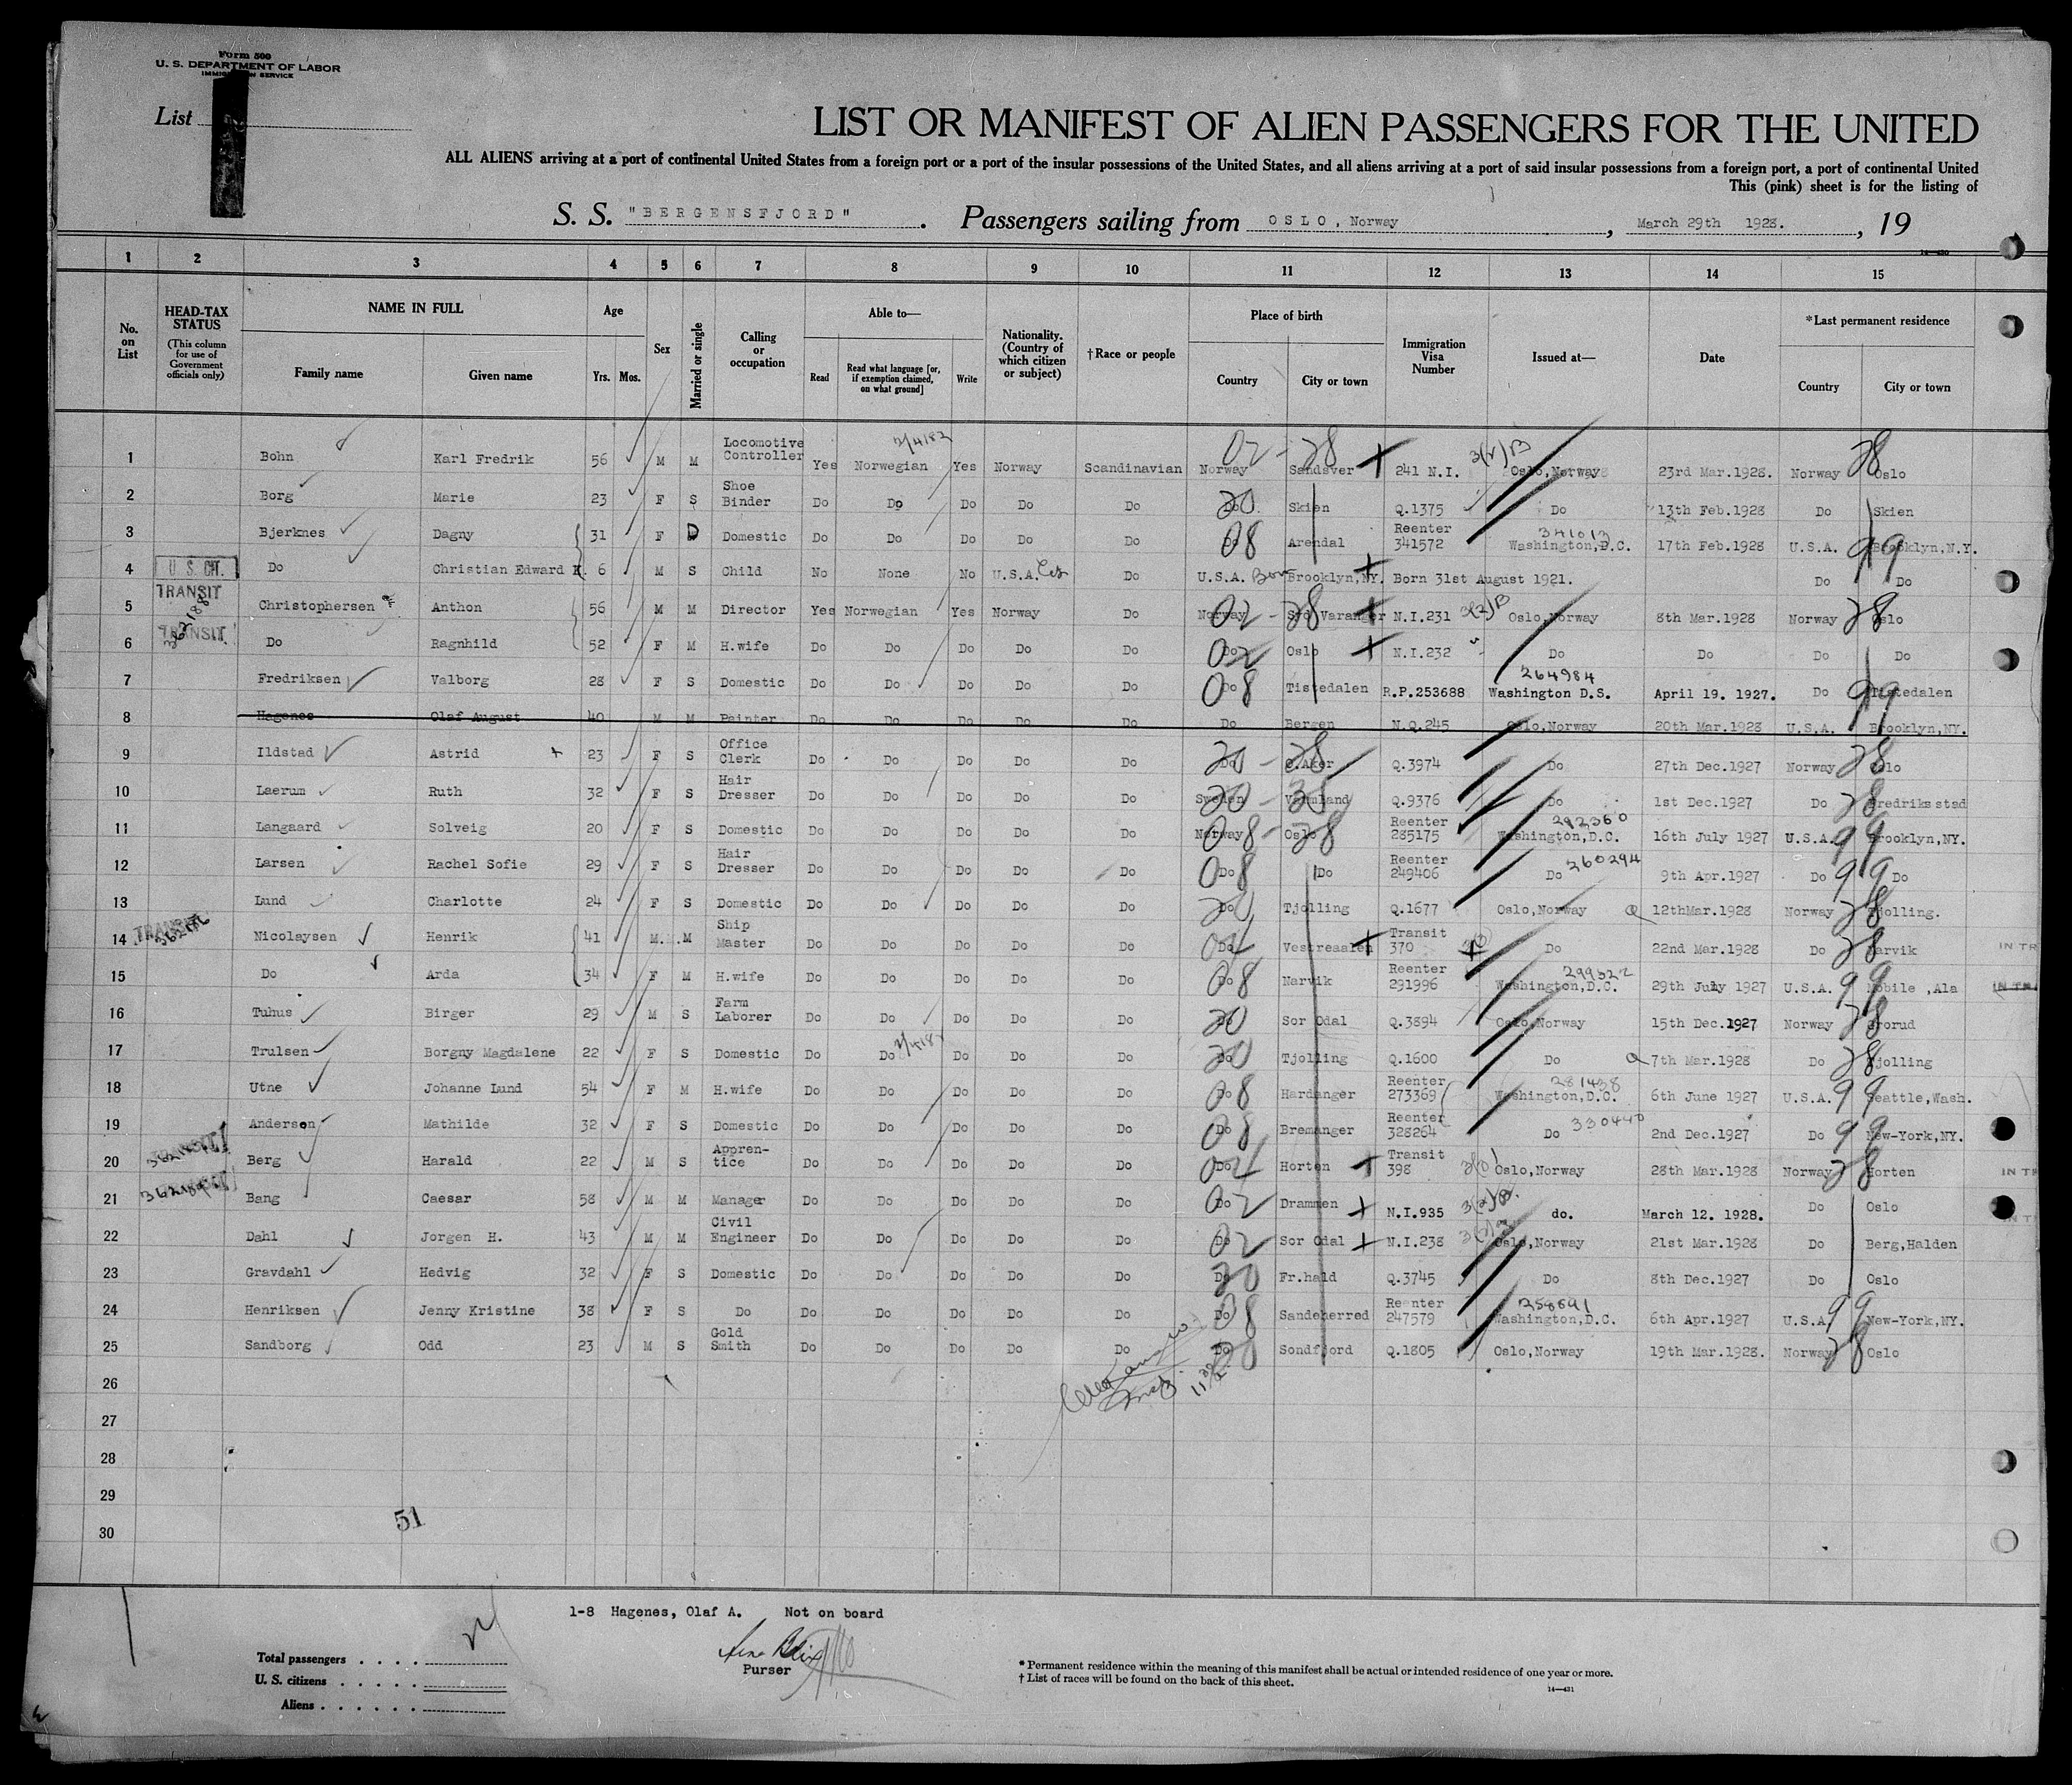 Form 500
U. S. DEPARTMENT OF LABOR
IMMIGRATION SERVICE
List
LIST OR MANIFEST OF ALIEN PASSENGERS FOR THE UNITED
ALL ALIENS arriving at a port of continental United States from a foreign port or a port of the insular possessions of the United States, and all aliens arriving at a port of said insular possessions from a foreign port, a port of continental United
This (pink) sheet is for the listing of
S. S. "BERGENSFJORD". Passengers sailing from OSLO, Norway, March 29th 1928., 19
1 2 3 4 5 6 7 8 9 10 11 12 13 14 15
No. on List
HEAD-TAX STATUS (This column for use of Government officials only)
NAME IN FULL
Family name Given name
Age
Yrs. Mos.
Sex
Married or single
Calling or occupation
Able to—
Read Read what language [or, if exemption claimed, on what ground] Write
Nationality. (Country of which citizen or subject)
†Race or people
Place of birth
Country City or town
Immigration Visa Number
Issued at—
Date
*Last permanent residence
Country City or town
1 Bohn Karl Fredrik 56 M M Locomotive Controller Yes Norwegian Yes Norway Scandinavian Norway Sandsver 241 N.I. Oslo, Norway 23rd Mar.1928. Norway Oslo
2 Borg Marie 23 F S Shoe Binder Do Do Do Do Do Do Skien Q.1375 Do 13th Feb.1928 Do Skien
3 Bjerknes Dagny 31 F D Domestic Do Do Do Do Do Do Arendal Reenter 341572 Washington,D.C. 17th Feb.1928 U.S.A. Brooklyn,N.Y.
4 U.S. CIT. Do Christian Edward K. 6 M S Child No None No U.S.A. Do U.S.A. Born Brooklyn,NY. Born 31st August 1921. Do Do
5 TRANSIT Christophersen Anthon 56 M M Director Yes Norwegian Yes Norway Do Norway Syd Varanger N.I.231 Oslo,Norway 8th Mar.1928 Norway Oslo
6 TRANSIT Do Ragnhild 52 F M H.wife Do Do Do Do Do Do Oslo N.I.232 Do Do Do Do
7 Fredriksen Valborg 28 F S Domestic Do Do Do Do Do Do Tistedalen R.P.253688 264984 Washington D.S. April 19. 1927. Do Tistedalen
8 Hagenes Olaf August 40 M M Painter Do Do Do Do Do Do Bergen N.Q.245 Oslo,Norway 20th Mar.1928 U.S.A. Brooklyn,NY.
9 Ildstad Astrid 23 F S Office Clerk Do Do Do Do Do Do Ø.Aker Q.3974 Do 27th Dec.1927 Norway Oslo
10 Laerum Ruth 32 F S Hair Dresser Do Do Do Do Do Sweden Varmland Q.9376 Do 1st Dec.1927 Do Fredriksstad
11 Langaard Solveig 20 F S Domestic Do Do Do Do Do Norway Oslo Reenter 285175 292360 Washington,D.C. 16th July 1927 U.S.A. Brooklyn,NY.
12 Larsen Rachel Sofie 29 F S Hair Dresser Do Do Do Do Do Do Do Reenter 249406 Do 260294 9th Apr.1927 Do Do
13 Lund Charlotte 24 F S Domestic Do Do Do Do Do Do Tjolling Q.1677 Oslo,Norway 12thMar.1928 Norway Tjolling.
14 TRANSIT Nicolaysen Henrik 41 M. M Ship Master Do Do Do Do Do Do Vestreaalen Transit 370 Do 22nd Mar.1928 Do Narvik
15 Do Arda 34 F M H.wife Do Do Do Do Do Do Narvik Reenter 291996 299322 Washington,D.C. 29th July 1927 U.S.A. Mobile ,Ala
16 Tuhus Birger 29 M S Farm Laborer Do Do Do Do Do Do Sor Odal Q.3894 Oslo,Norway 15th Dec.1927 Norway Grorud
17 Trulsen Borgny Magdalene 22 F S Domestic Do Do Do Do Do Do Tjolling Q.1600 Do 7th Mar.1928 Do Tjolling
18 Utne Johanne Lund 54 F M H.wife Do Do Do Do Do Do Hardanger Reenter 273369 281438 Washington,D.C. 6th June 1927 U.S.A. Seattle,Wash.
19 Anderson Mathilde 32 F S Domestic Do Do Do Do Do Do Bremanger Reenter 328264 Do 330440 2nd Dec.1927 Do New-York,NY.
20 Berg Harald 22 M S Appren-tice Do Do Do Do Do Do Horten Transit 398 Oslo,Norway 28th Mar.1928 Norway Horten
21 Bang Caesar 58 M M Manager Do Do Do Do Do Do Drammen N.I.935 do. March 12. 1928. Do Oslo
22 Dahl Jorgen H. 43 M M Civil Engineer Do Do Do Do Do Do Sor Odal N.I.238 Oslo,Norway 21st Mar.1928 Do Berg,Halden
23 Gravdahl Hedvig 32 F S Domestic Do Do Do Do Do Do Fr.hald Q.3745 Do 8th Dec.1927 Do Oslo
24 Henriksen Jenny Kristine 38 F S Do Do Do Do Do Do Do Sandeherred Reenter 247579 258691 Washington,D.C. 6th Apr.1927 U.S.A. New-York,NY.
25 Sandborg Odd 23 M S Gold Smith Do Do Do Do Do Do Sondfjord Q.1805 Oslo,Norway 19th Mar.1928. Norway Oslo
26
27
28
29
30
51
1-8 Hagenes, Olaf A. Not on board
Purser
Total passengers
U. S. citizens
Aliens
* Permanent residence within the meaning of this manifest shall be actual or intended residence of one year or more.
† List of races will be found on the back of this sheet.
14—431